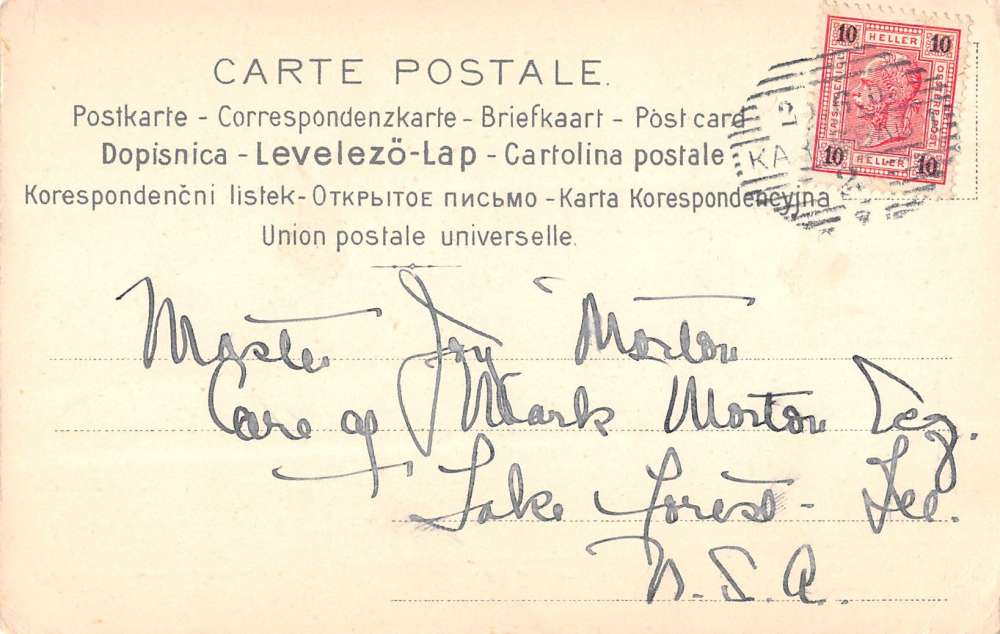 CARTE POSTALE.
Postkarte - Correspondenzkarte - Briefkaart - Post card
Dopisnica - Levelező-Lap - Cartolina postale
Korespondenčni listek - Открытое письмо - Karta Korespondencyjna
Union postale universelle.
10 HELLER 10
10 HELLER 10
KA
Master Joy Morton
Care of Mark Morton Esq.
Lake Forest - Ill.
U.S.A.